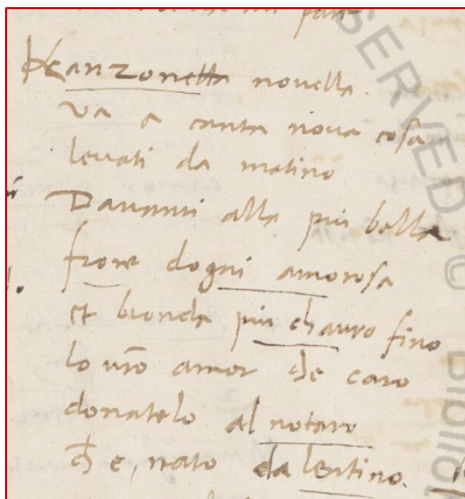 pari
Kanzonetta novella.
va a canta nova cosa
levati da matino
Davanti alla piu bella
frore dogni amorosa
et bionda piu ch auro fino
lo vr̃o amor che caro
donatelo al notaro
che, nato da lentino.
SERVED ©
Bibliot